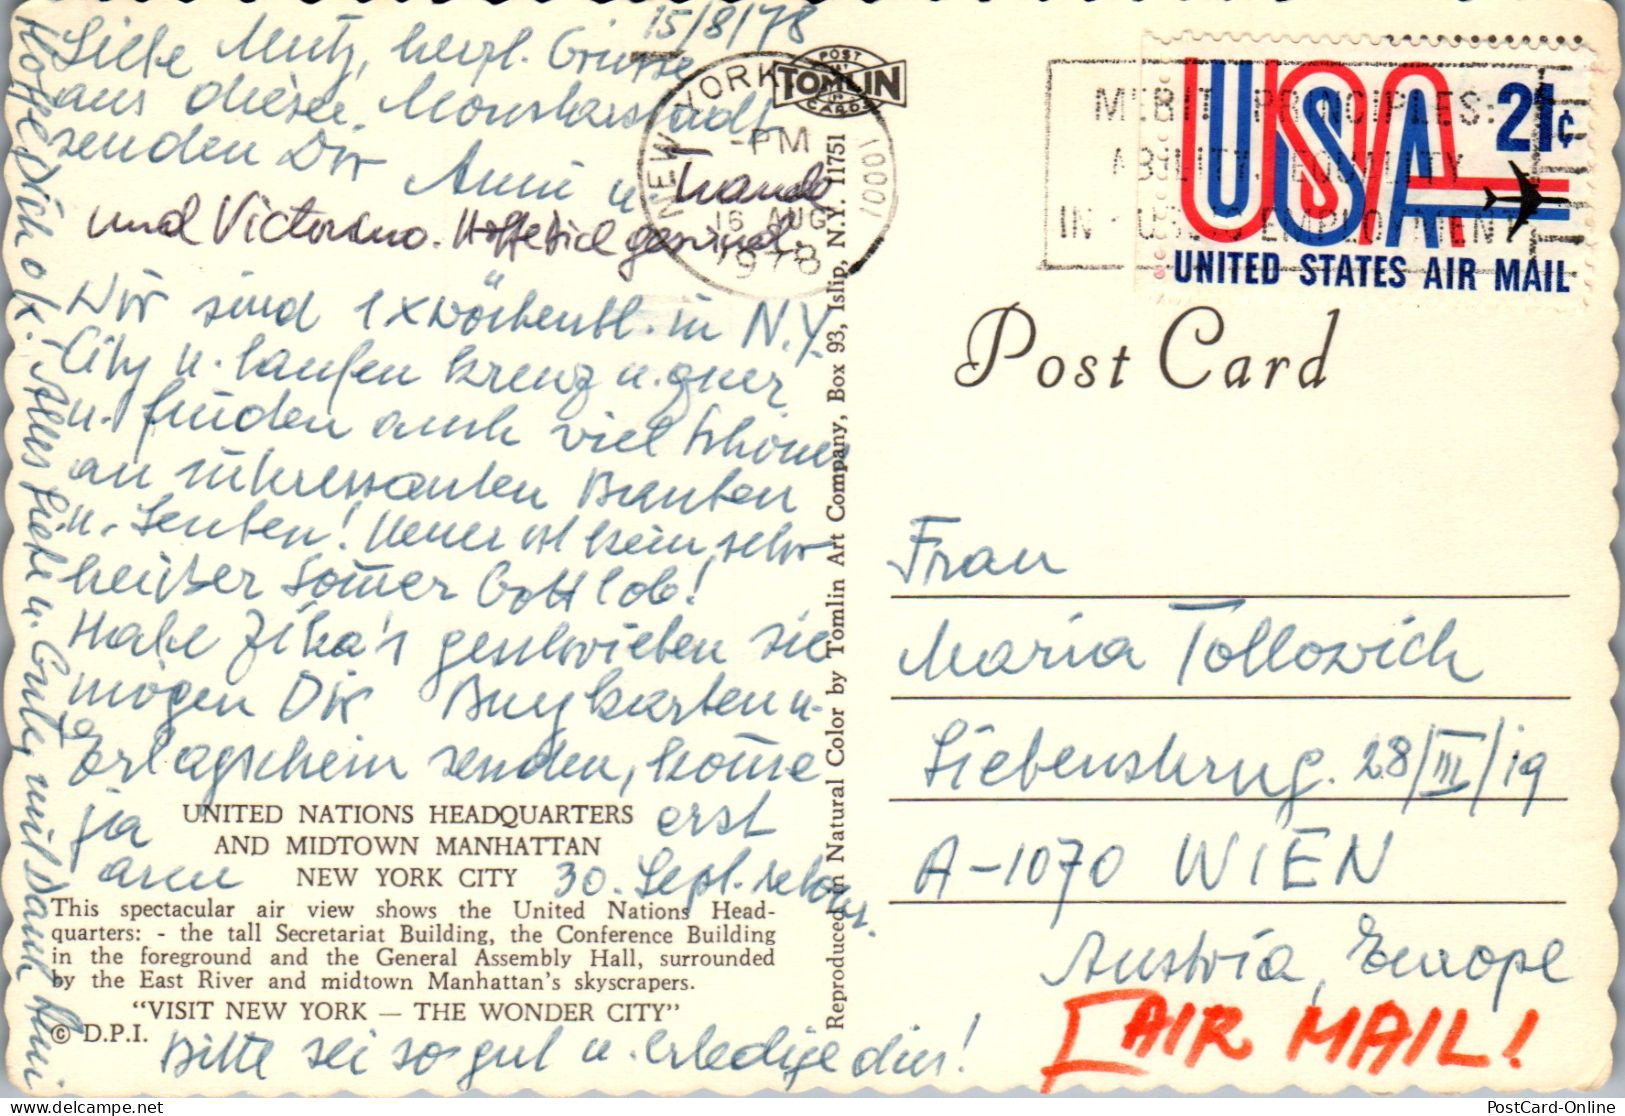 15/8/78
Liebe Mutz, herzl. Grüsse
aus dieser Monsterstadt
senden Dir Anni u.
und Victorino. Hoffe Dich gesund.
Wir sind 1 x wöchentl. in N.Y.
City u. laufen kreuz u. quer
u. finden auch viel Schönes
an interessanten Bauten
u. Leuten! Heuer ist kein sehr
heißer Som̅er Gott lob!
Habe Zika's geschrieben sie
mögen Dir Burgkarten u.
Erlagschein senden, kom̅e
ja erst
am 30. Sept. retour.
Bitte sei so gut u. erledige dies!
Hoffe Dich ok. Alles Liebe u. Gute, mit Dank Anni
UNITED NATIONS HEADQUARTERS
AND MIDTOWN MANHATTAN
NEW YORK CITY
This spectacular air view shows the United Nations Head-
quarters: - the tall Secretariat Building, the Conference Building
in the foreground and the General Assembly Hall, surrounded
by the East River and midtown Manhattan's skyscrapers.
"VISIT NEW YORK — THE WONDER CITY"
© D.P.I.
POST
TOMLIN
CARDS
Reproduced in Natural Color by Tomlin Art Company, Box 93, Islip, N.Y. 11751
NEW YORK 10001
PM
16 AUG
1978
MERIT PRINCIPLES:
ABILITY, EQUALITY
IN PUBLIC EMPLOYMENT
USA 21¢
UNITED STATES AIR MAIL
Post Card
Frau
Maria Tollowich
Siebensterng. 28/III/19
A-1070 WIEN
Austria, Europe
[AIR MAIL!
PostCard-Online